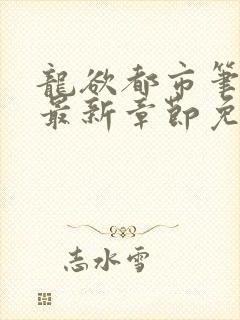 龍欲都市筆
最新章節免
志水雪